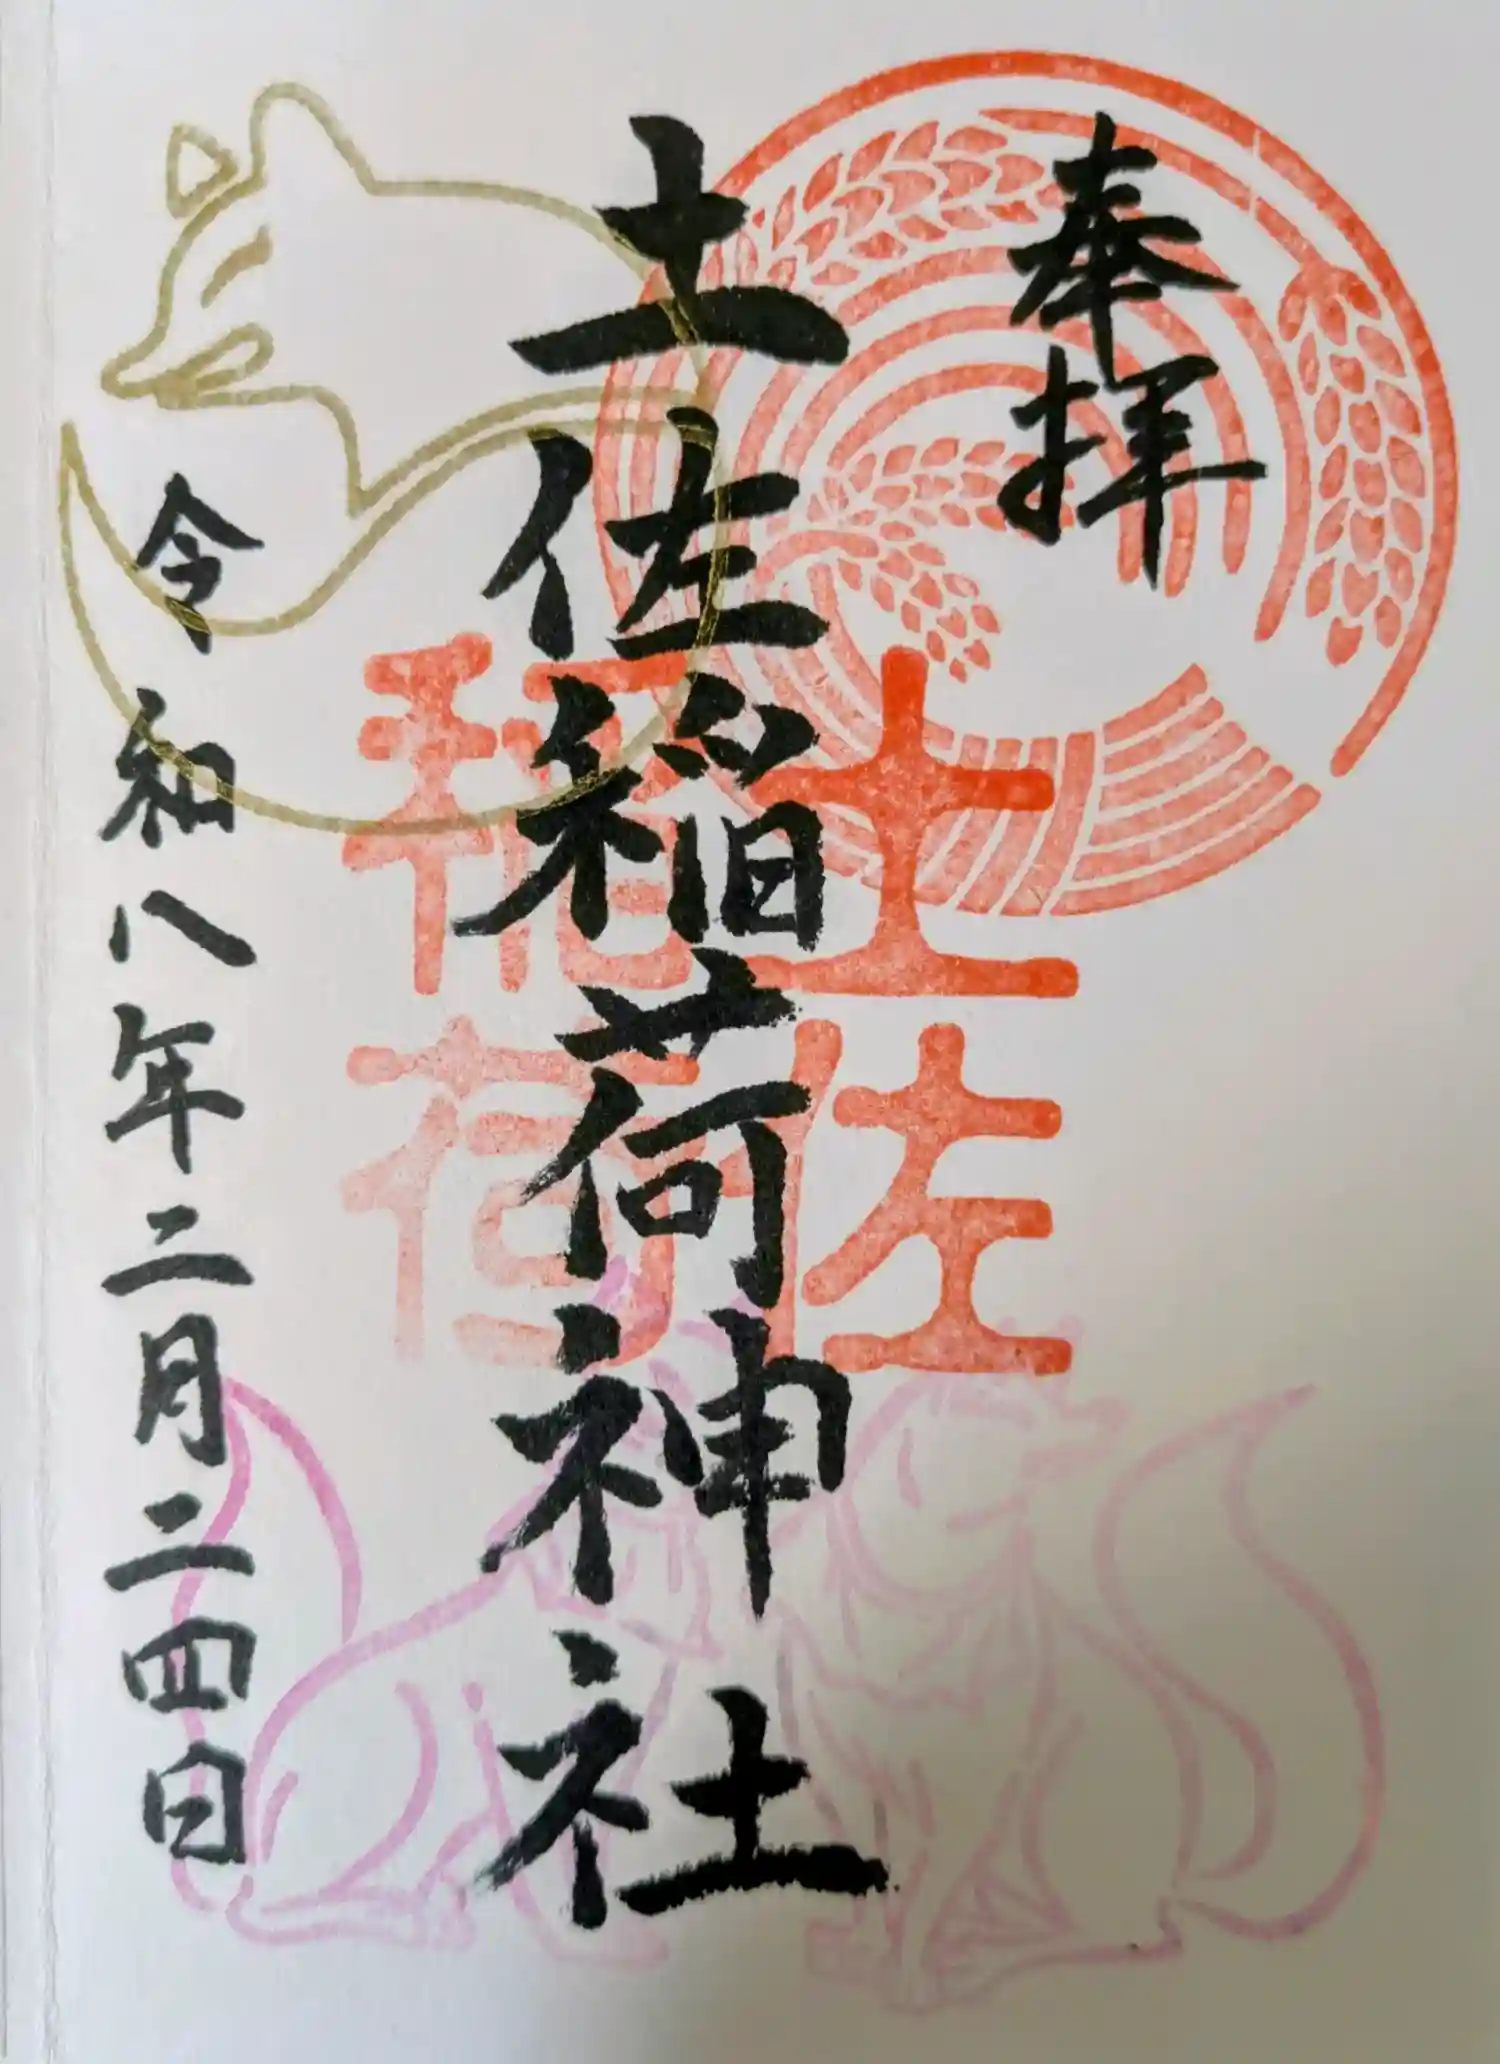 奉拝
土佐
稲荷
土佐稲荷神社
令和八年二月二四日